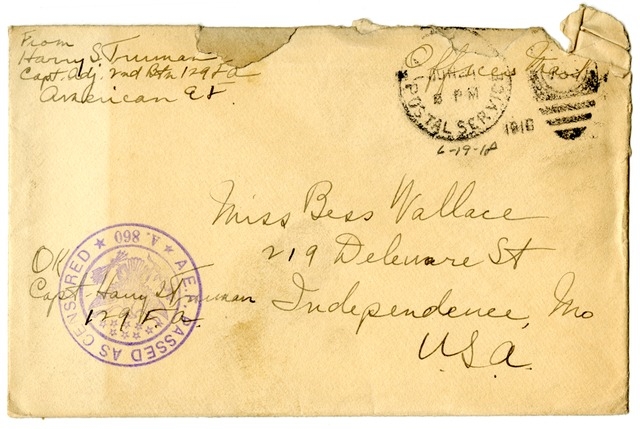 From
Harry S. Truman
Capt. Adj. 2nd Btn 129 F.A.
American E.F.
Officers Mail
POSTAL SERVICE
8 PM
1918
6-19-18
Miss Bess Wallace
219 Delaware St
Independence, Mo
U.S.A.
OK
Capt. Harry S Truman
129 F.A.
A.E.F. PASSED AS CENSORED
A. 860